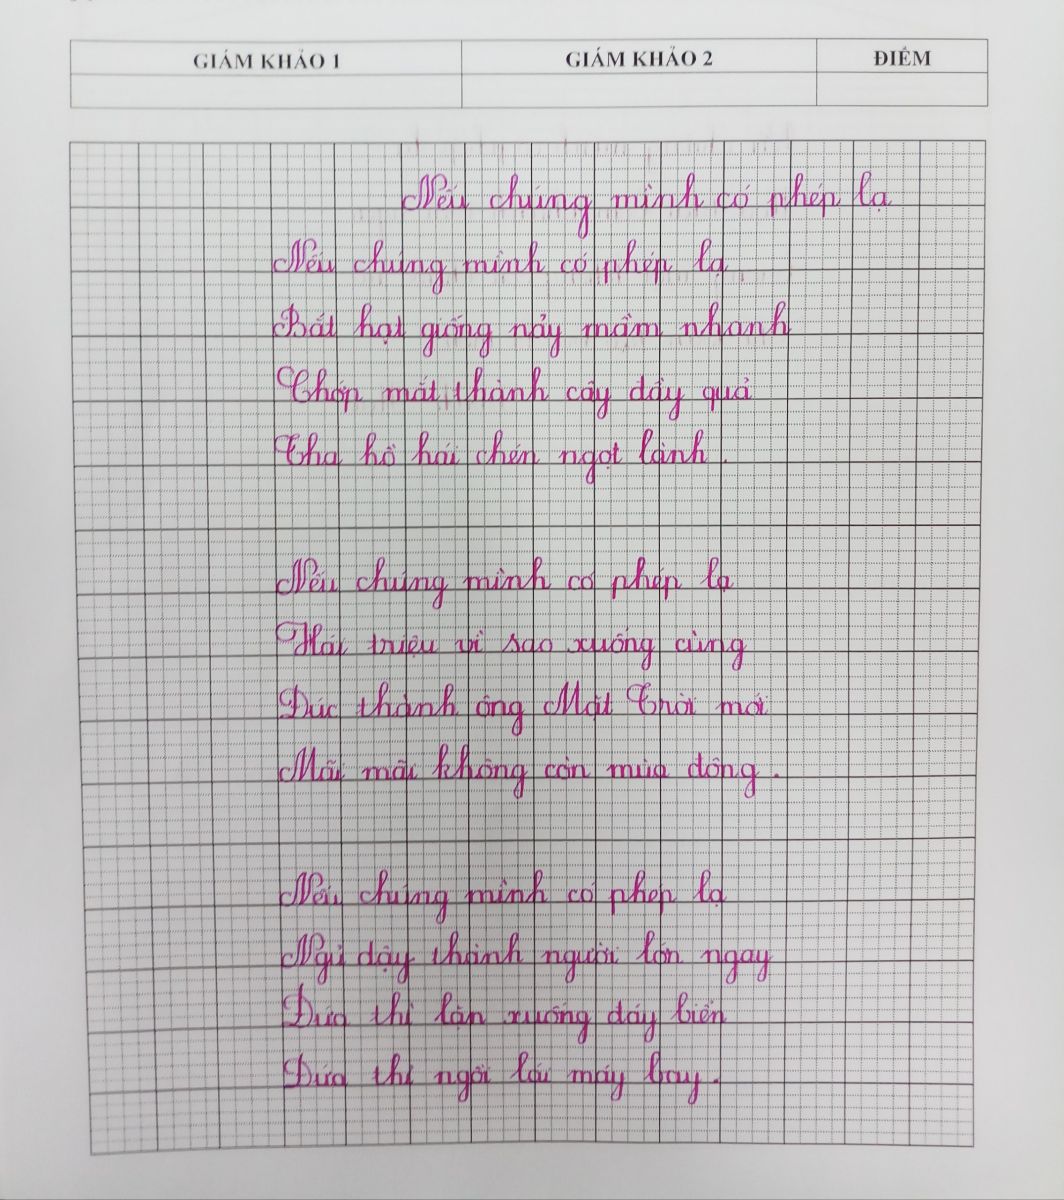 GIÁM KHẢO 1 GIÁM KHẢO 2 ĐIỂM
Nếu chúng mình có phép lạ
Nếu chúng mình có phép lạ
Bắt hạt giống nảy mầm nhanh
Chớp mắt thành cây đầy quả
Tha hồ hái chén ngọt lành.
Nếu chúng mình có phép lạ
Hái triệu vì sao xuống cùng
Đúc thành ông Mặt Trời mới
Mãi mãi không còn mùa đông.
Nếu chúng mình có phép lạ
Ngủ dậy thành người lớn ngay
Đứa thì lặn xuống đáy biển
Đứa thì ngồi lái máy bay.